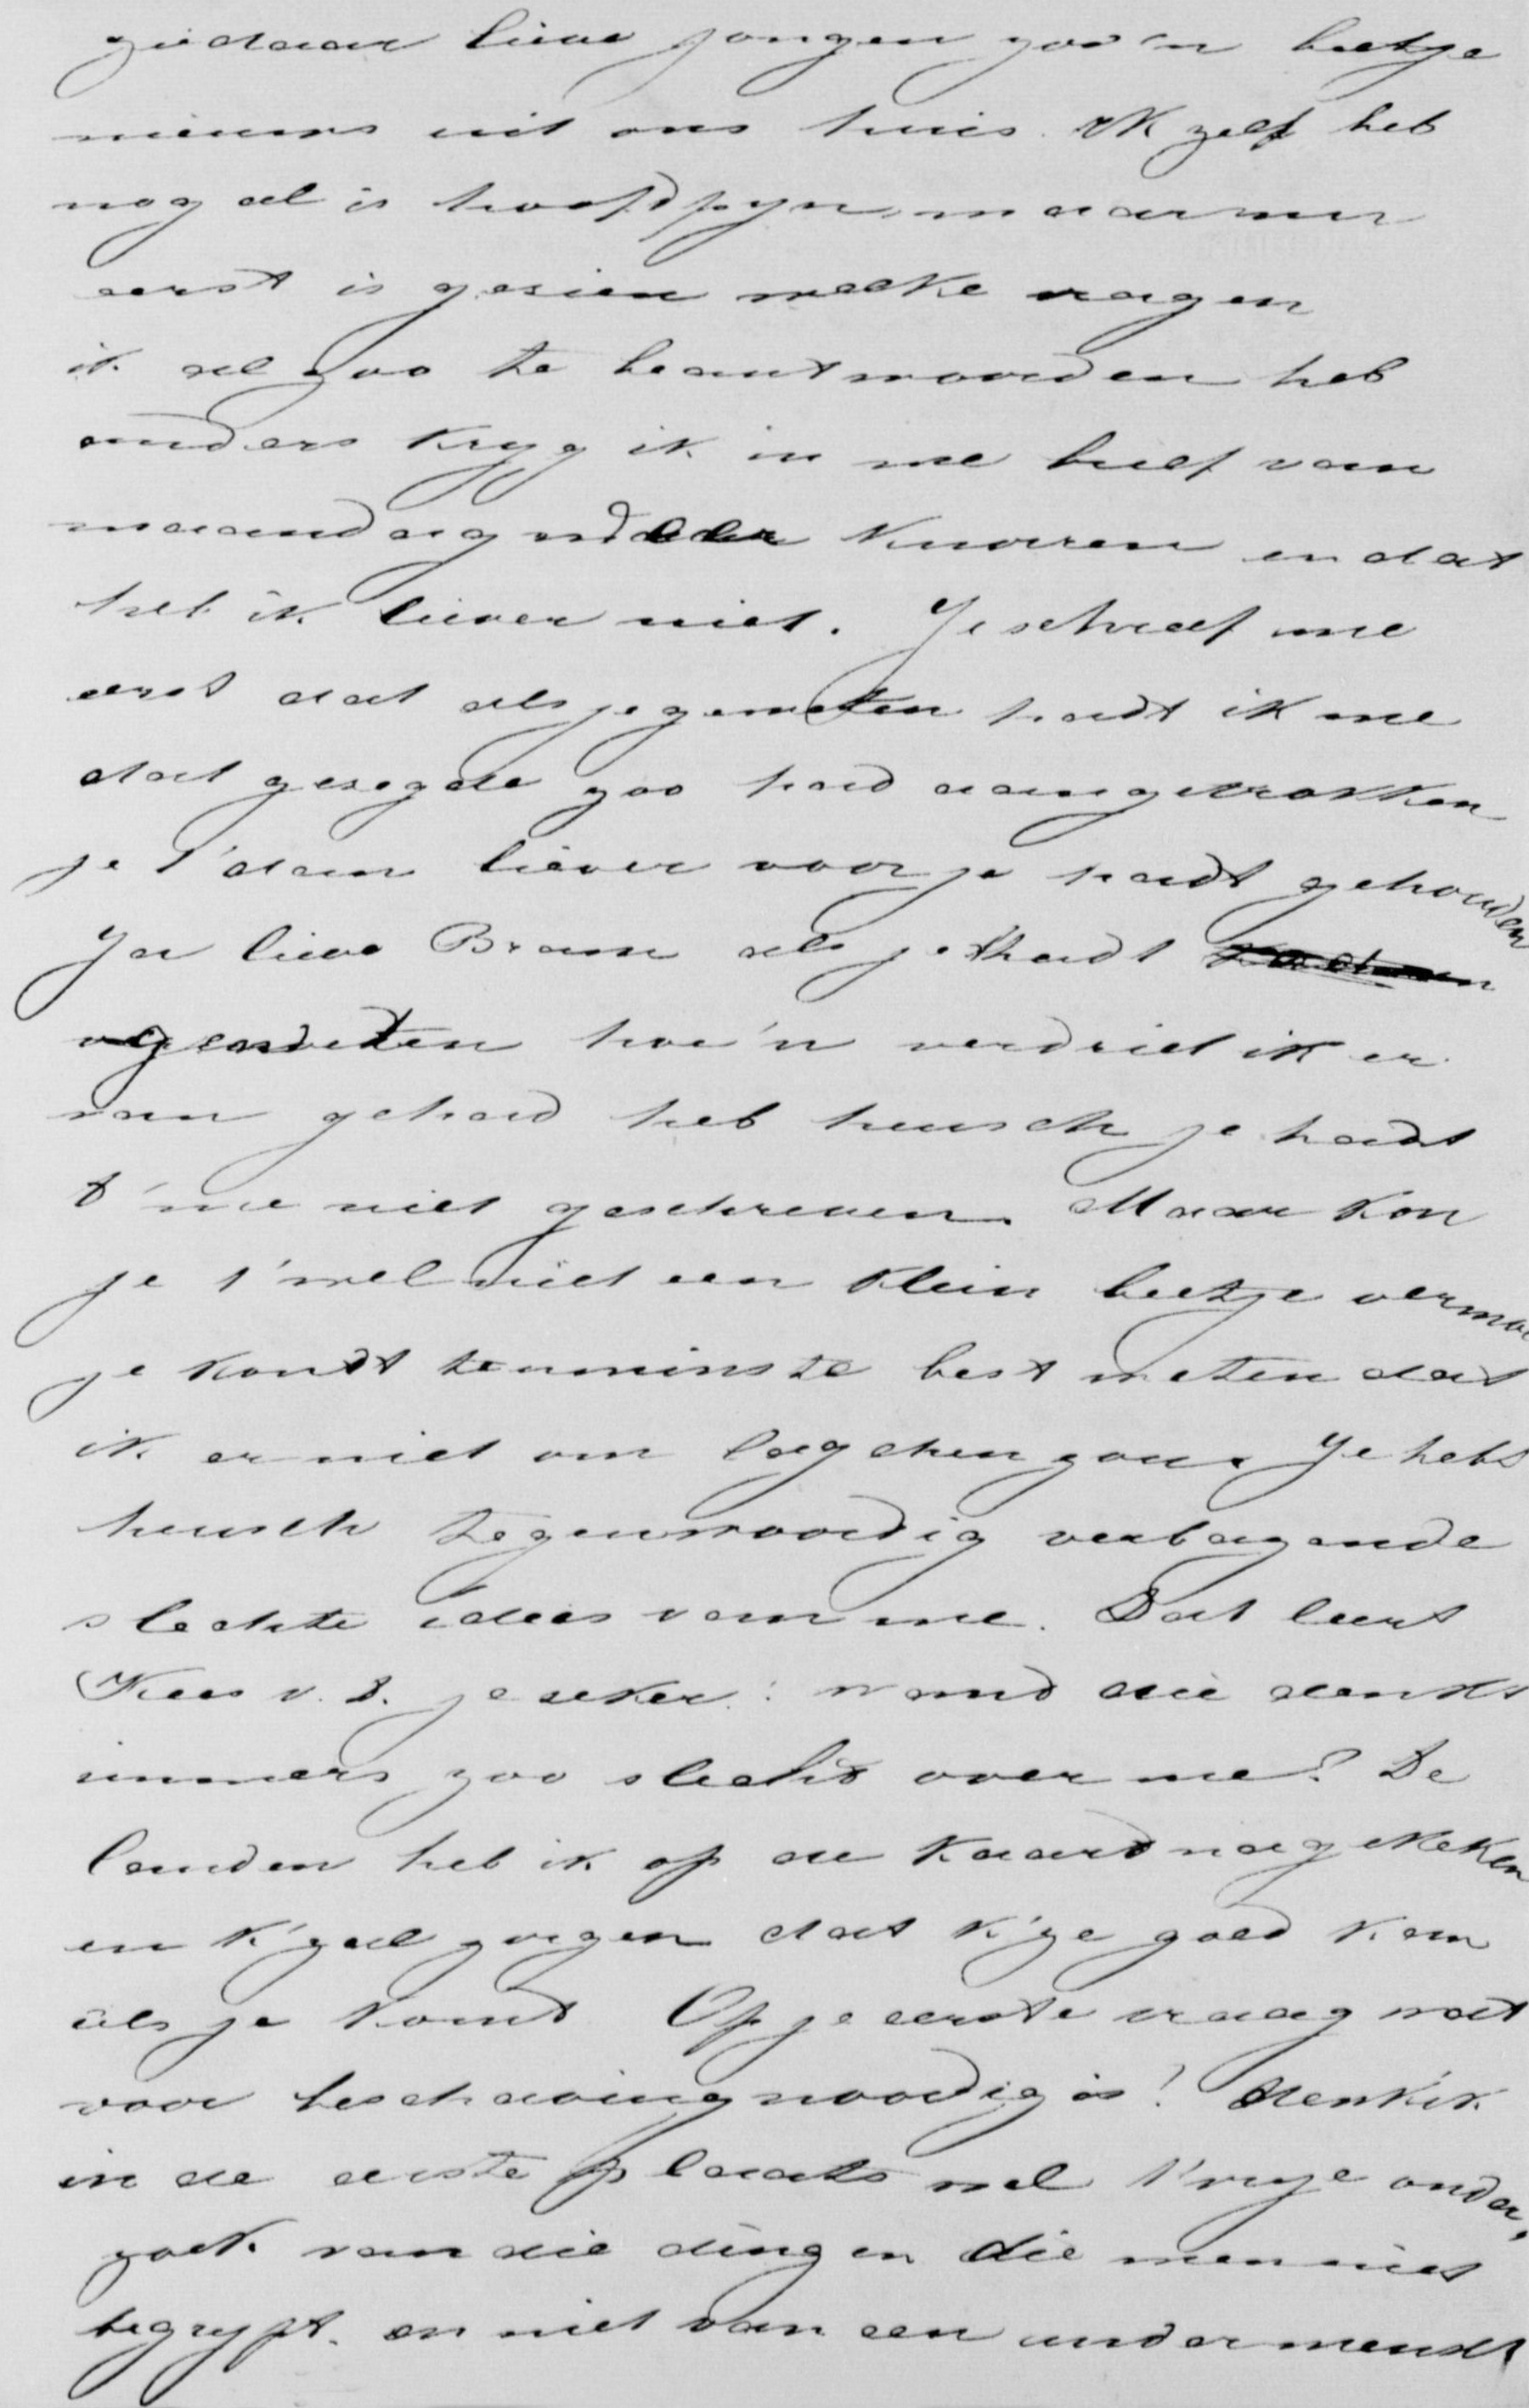 ziedaar lieve jongen zoo'n beetje
nieuws uit ons huis. Ik zelf heb
nog al is hoofdpyn, maar nu
eerst is gesien welke vragen
ik al zoo te beantwoorden heb
anders kryg ik in me brief van
maandag weer knorren en dat
heb ik liever niet. Je schreef me
eerst dat als je geweten hadt ik me
dat gesegde zoo had aangetrokken
je t'dan liever voor je hadt gehouden
Ja lieve Bram als je t hadt
geweten hoe'n verdriet ik er
van gehad heb heusch je hadt
t'me niet geschreven. Maar kon
je t'wel niet een klein beetje
je kondt tenminste best weten dat
ik er niet om lagchen zou. Je hebt
heusch tegenwoordig verbazende
slechte idees van me. Dat leert
Kees v. D. je seker: wand die denkt
immers zoo slecht over me? De
landen heb ik op de kaard nagekeken
en k'zal zorgen dat k'ze goed ken
als je komt. Op je eerste vraag wat
voor beschaving noodig is! denk ik
in de eerste plaats wel t'vrye onder,
zoek van die dingen die men niet
begrypt. en niet van een ander mensch